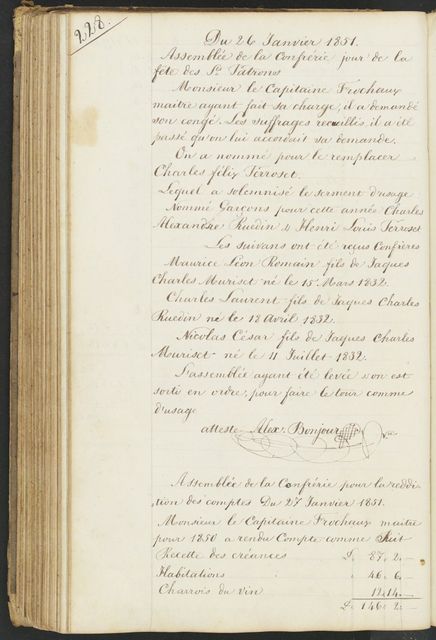 228.
Du 26 Janvier 1851.
Assemblée de la Confrérie jour de la
fête des Sts Patrons
Monsieur le Capitaine Frochaux
maitre ayant fait sa charge, il a demandé
son congé. Les suffrages recueillis, il a été
passé qu'on lui accordait sa demande.
On a nommé pour le remplacer
Charles félix Perroset.
Lequel a solemnisé le serment d'usage
Nommé Garçons pour cette année Charles
Alexandre Ruedin & Henri Louis Perroset
Les suivans ont été reçus Confrères
Maurice Léon Romain fils de Jaques
Charles Muriset né le 15e Mars 1832.
Charles Laurent fils de Jaques Charles
Ruedin né le 18 Avril 1832.
Nicolas César fils de Jaques Charles
Muriset né le 11 Juillet 1832.
L'assemblée ayant été levée on est
sorti en ordre, pour faire le tour comme
d'usage
atteste Alex. Bonjour
Assemblée de la Confrérie pour la reddi
tion des comptes Du 27 Janvier 1851.
Monsieur le Capitaine Frochaux maitre
pour 1850 a rendu Compte comme Suit
Recette des créances £ 87. 2. -
Habitations " 46. 6. -
Charrois du vin 12. 14. -
£ 146. 2. -